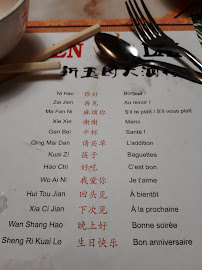 新玉园大酒楼
Ni Hao 你好 Bonjour !
Zai Jian 再见 Au revoir !
Ma Fan Ni 麻烦你 S'il te plaît / S'il vous plaît
Xie Xie 谢谢 Merci
Gan Bei 干杯 Santé !
Qing Mai Dan 请买单 L'addition
Kuai Zi 筷子 Baguettes
Hao Chi 好吃 C'est bon !
Wo Ai Ni 我爱你 Je t'aime
Hui Tou Jian 回头见 À bientôt
Xia Ci Jian 下次见 À la prochaine
Wan Shang Hao 晚上好 Bonne soirée
Sheng Ri Kuai Le 生日快乐 Bon anniversaire